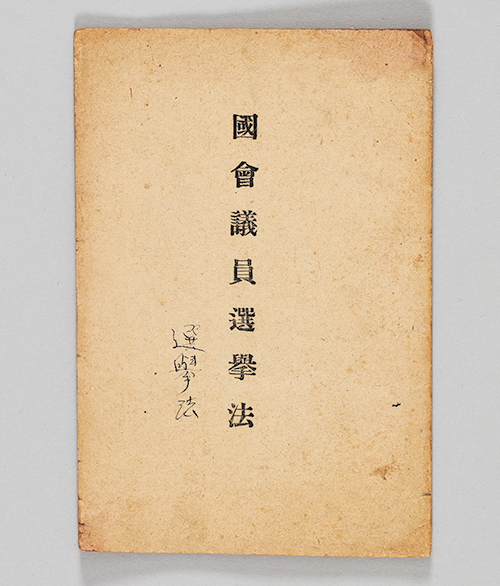 國會議員選擧法
選擧法